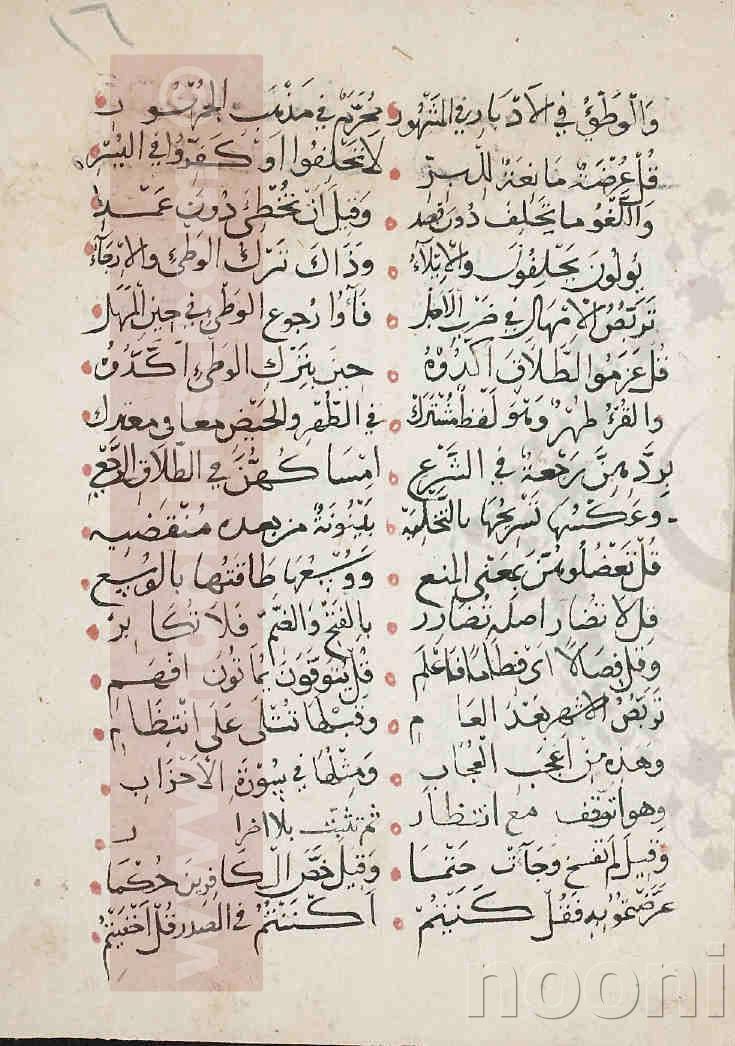 ١٦
وَالْوَطْيُ في الْاَدْبَارِ في المَشْهُور مُحَرَّمٌ في مَذْهَبِ الجُمْهُور
قُلْ عُرْضَةً مَانِعَةً لِلْبِرِّ لَا تَحْلِفُوا اَوْ كَفِّرُوا في اليُسْرِ
وَاللَّغْوُ مَا يُحْلَفُ دُونَ قصد وَقِيلَ اَنْ تُخْطِئَ دُونَ عَمْدِ
يُولُونَ يَحْلِفُونَ وَالْاِيْلَآءُ وَذَاكَ تَرْكُ الوَطْئِ وَالْاِرْجَآءُ
تَرَبُّصُ الْاِمْهَالِ في ضَرْبِ الْاَجَلْ فَآءُوا رُجُوعُ الوَطْيِ في حِينِ المَهَلْ
قُلْ عَزَمُوا الطَّلَاقَ اَكَّدُوْهُ حِينَ بِتَرْكِ الوَطْيِ اَكَّدُوْهُ
والقُرْءُ طُهْرٌ وَهْوَ لَفْظٌ مُشْتَرَكْ في الطُّهْرِ والحَيْضِ معا في معترك
بِرَدِّهِنَّ رَجْعَةً في الشَّرْعِ اِمْسَاكُهُنَّ في الطَّلَاقِ الرَّجْعِي
وَعَكْسُهَا تَسْرِيحُهَا بِالتَّخْلِيَه بَيْنُونَةٌ مِن بعده مُنْقَضِيَه
قُلْ تَعْضُلُوهُنَّ بِمَعْنَى المنع وَوُسْعُهَا طَاقَتُهَا بِالْوُسْعِ
قل لَا تُضَارَّ اصله تُضَارَر بِالفَتْحِ وَالضَّمِّ فَلَا تُكَابِرْ
وَقُلْ فِصَالًا اَىْ فِطَامًا فَاعْلَمِ قُلْ يُتَوَفَّوْنَ يَمُوتُونَ افْهَمِ
تَرَبُّصُ الاشهر بَعْدَ العَامِ وَقَبْلَهَا تُتْلَى عَلَى انْتِظَامِ
وهَذِهِ مِنْ اَعْجَبِ الْعُجَابِ وَمِثْلُهَا في سُوْرَةِ الْاَحْزَابِ
وهو توقف مع انتظار ثم تثبت بلا
وَقِيلَ لم تُنْسَخْ وَجَآءَتْ حَتْمَا وَقِيلَ خَصَّ الْكَافِرِينَ حُكْمَا
عَرَّضْتُمُوْ بِهِ فَقُلْ كَنَيْتُمُ اَكْنَنْتُمُ في الصدر قُلْ اَخْفَيْتُمُ
nooni